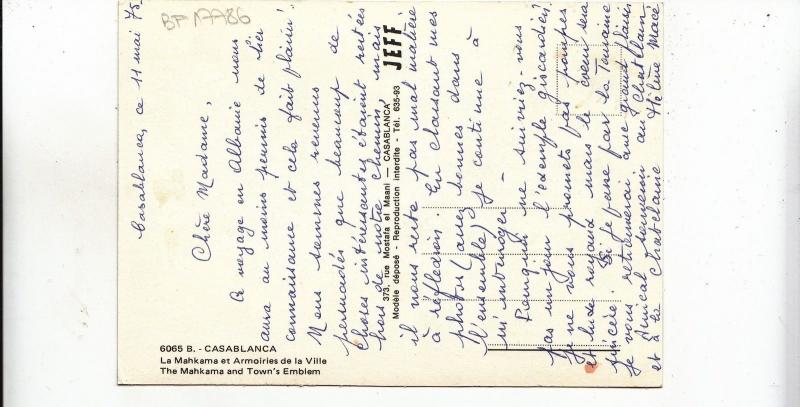 BF 17786
Casablanca, ce 11 mai 75
Chère Madame,
Ce voyage en Albanie nous
aura au moins permis de lier
connaissance et cela fait plaisir !
Nous sommes revenus
persuadés que beaucoup de
choses intéressantes étaient restées
hors de notre chemin, mais
il nous reste pas mal matière
à réflexion. En classant mes
photos (assez bonnes dans
l'ensemble) je continue à
m'interroger –
Pourquoi ne suiviez-vous
pas un jour l'exemple giscardien ?
Je ne vous promets pas pompes
et lude regard mais le coeur sera
sincère. Si je passe par la Touraine
je vous retiendrai avec grand plaisir
Amical souvenir au Châtelain
et à la Chatelaine
Hélène Macé
JEFF
373, rue Mostafa el Maani — CASABLANCA
Modèle déposé - Reproduction interdite - Tél. 635-93
6065 B. - CASABLANCA
La Mahkama et Armoiries de la Ville
The Mahkama and Town's Emblem